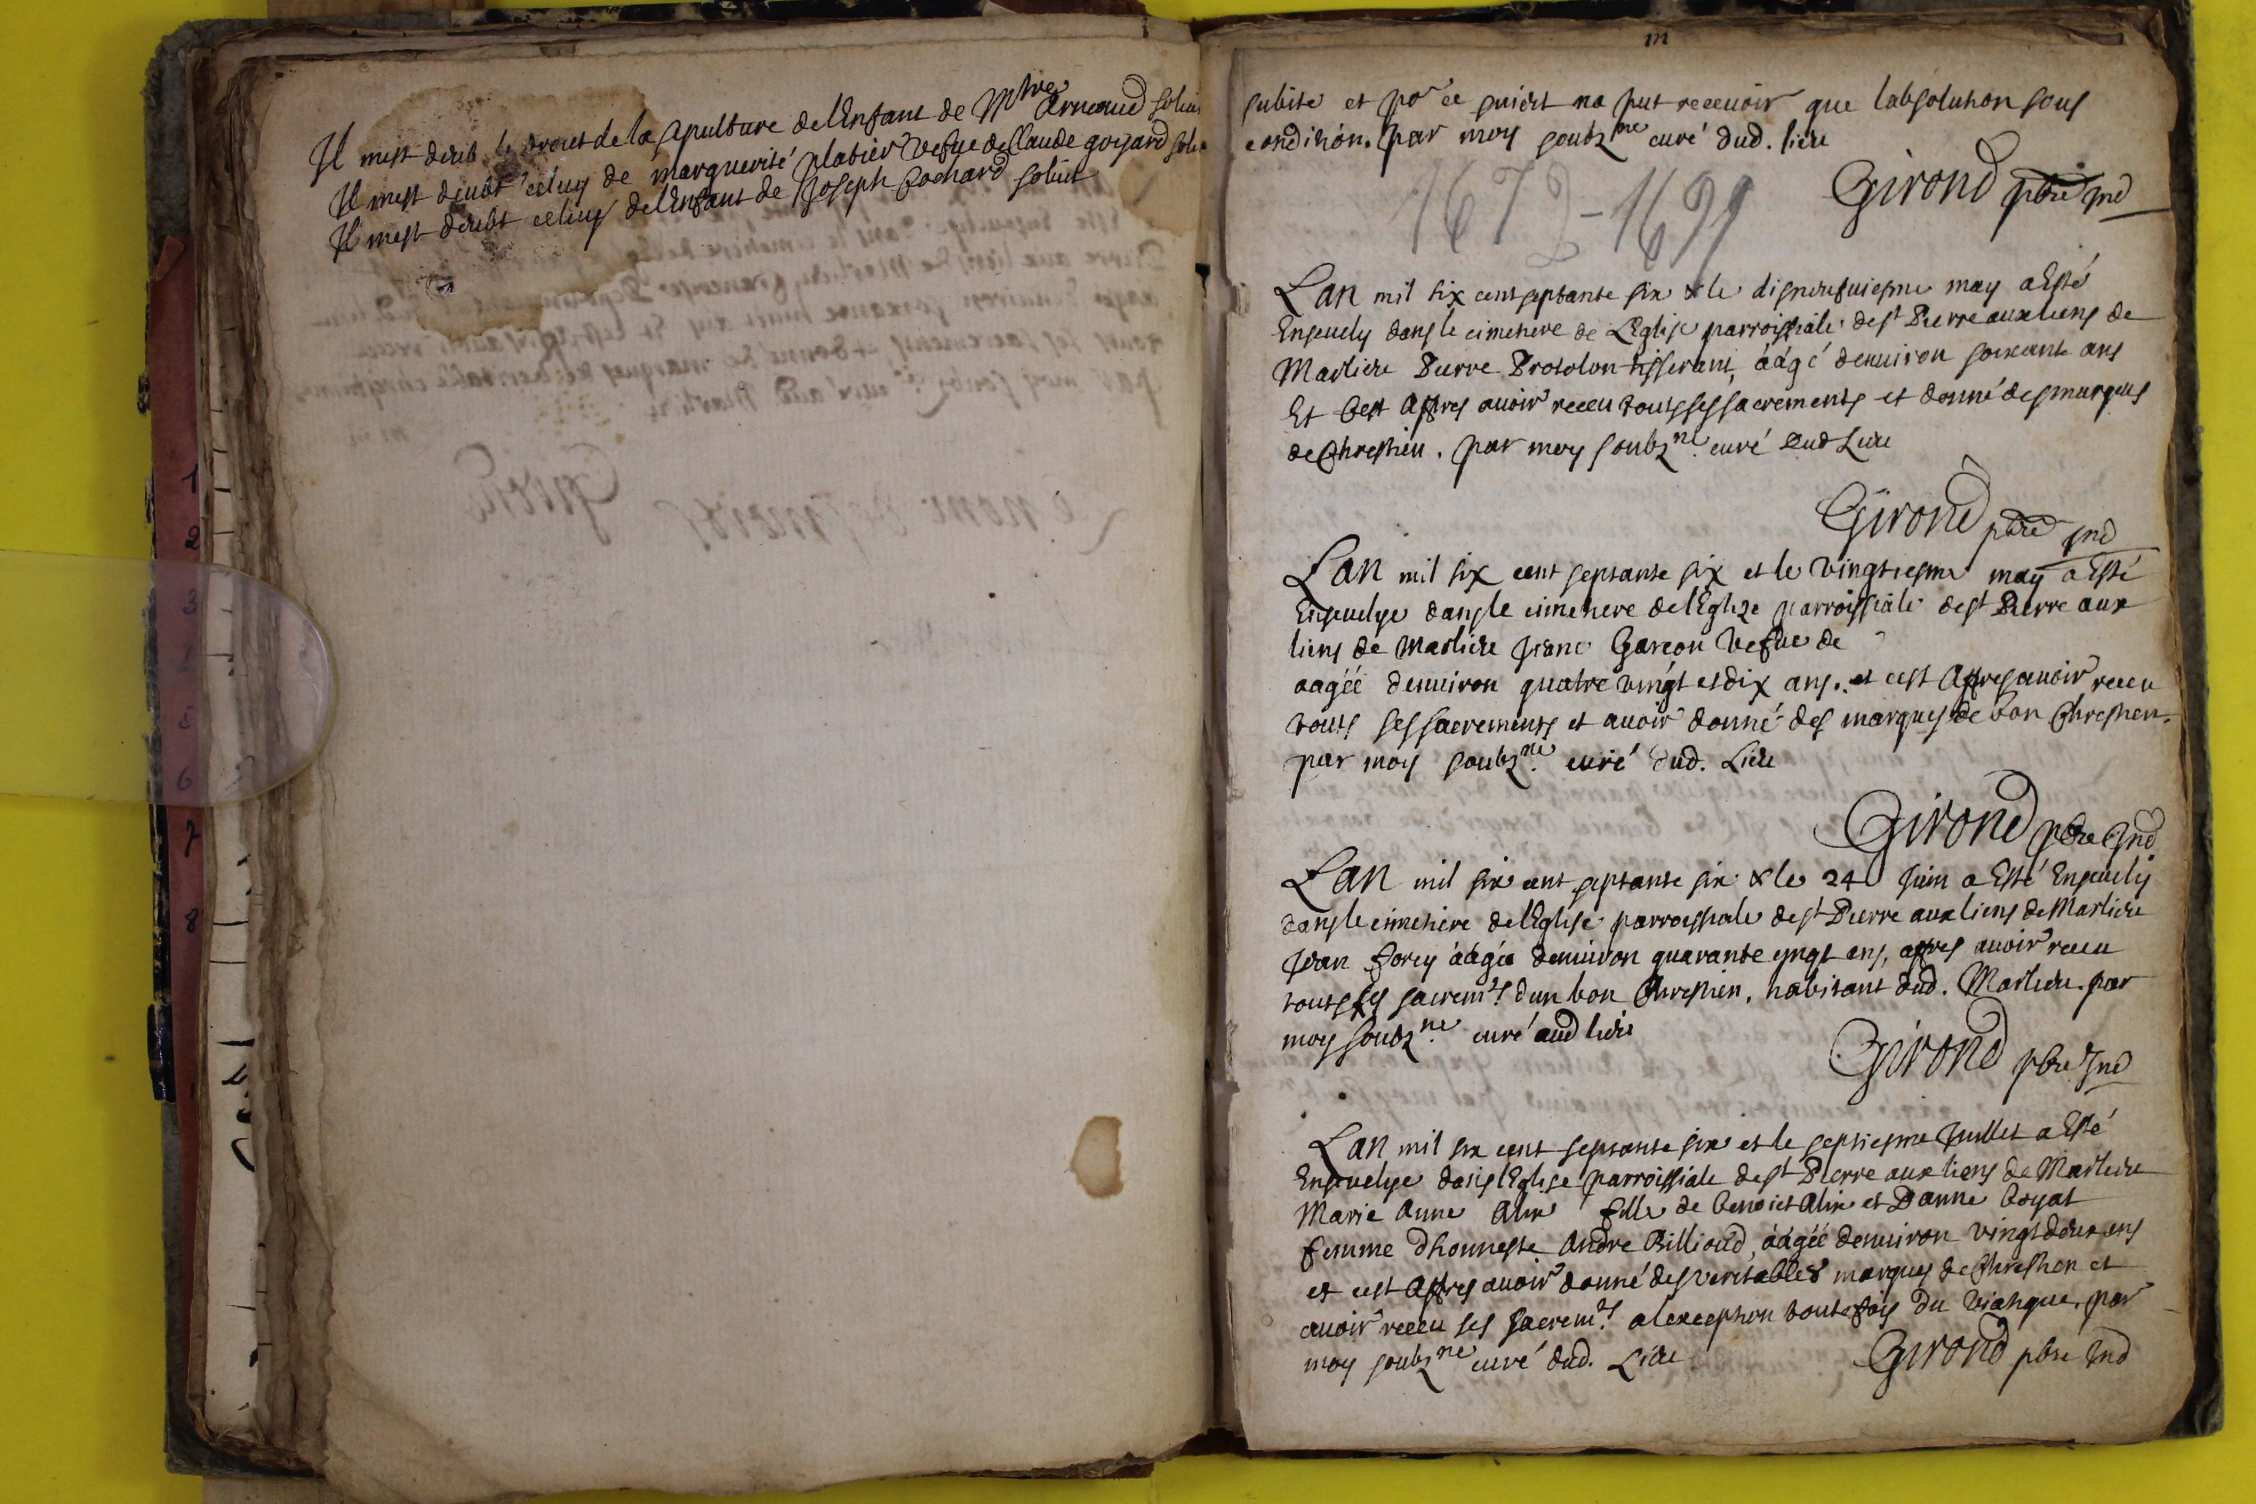 Il mest deub le droit de la sepulture de lEnfant de Mtre Arnaud solui
Il mest deubt celuy de marguerite platier vefue de Claude goyard solui
Il mest deubt celuy de lEnfant de Joseph Cochard soluit
subite et por ce suiect na put receuoir que labsolution sous
condition. par moy soubzne curé dud. lieu
1672-1699
Girond pbre Ind
Lan mil six cent septante six & le disneufuiesme may a Esté
Enseuely dans le cimetiere de LEglise parroissiale de st Pierre aux liens de
Marlieu Pierre Protolon tisserant, áâgé denuiron soixante ans
Et Cest Apres auoir receu tous ses sacrements et donné des marques
de Chrestien. par moy soubzne. curé dud Lieu
Girond pbre Ind
Lan mil six cent septante six et le vingtiesme may a Esté
Enseuelye dans le cimetiere de lEglize parroissiale de st Pierre aux
liens de Marlieu Jeane Garcon Vefue de
aagéé denuiron quatre vingt et dix ans. et cest Apres auoir receu
touts ses sacrements et auoir donné des marques de bon Chrestien.
par moy soubzne. curé dud. Lieu
Girond pbre Ind
Lan mil six cent septante six & le 24 Juin a Esté Enseuely
dans le cimetiere de lEglise parroissiale de st Pierre aux liens de Marlieu
Jean Forey áâgé denuiron quarante cinqt ans, apres auoir receu
touts ses sacremts. dun bon Chrestien, habitant dud. Marlieu. par
moy soubzne. curé aud lieu
Girond pbre Ind
Lan mil six cent septante six et le septiesme Juillet a Esté
Enseuelye dans lEglise parroissiale de st Pierre aux liens de Marlieu
Marie Anne Alix fille de Benoict Alix et Danne boyat
femme dhonneste Andre Billioud, áâgéé denuiron vingt deux ans
et cest Apres auoir donné des veritables marques de Chrestien et
auoir receu ses sacremts. a lexception toutefois du viatique, par
moy soubzne curé dud. Lieu
Girond pbre Ind